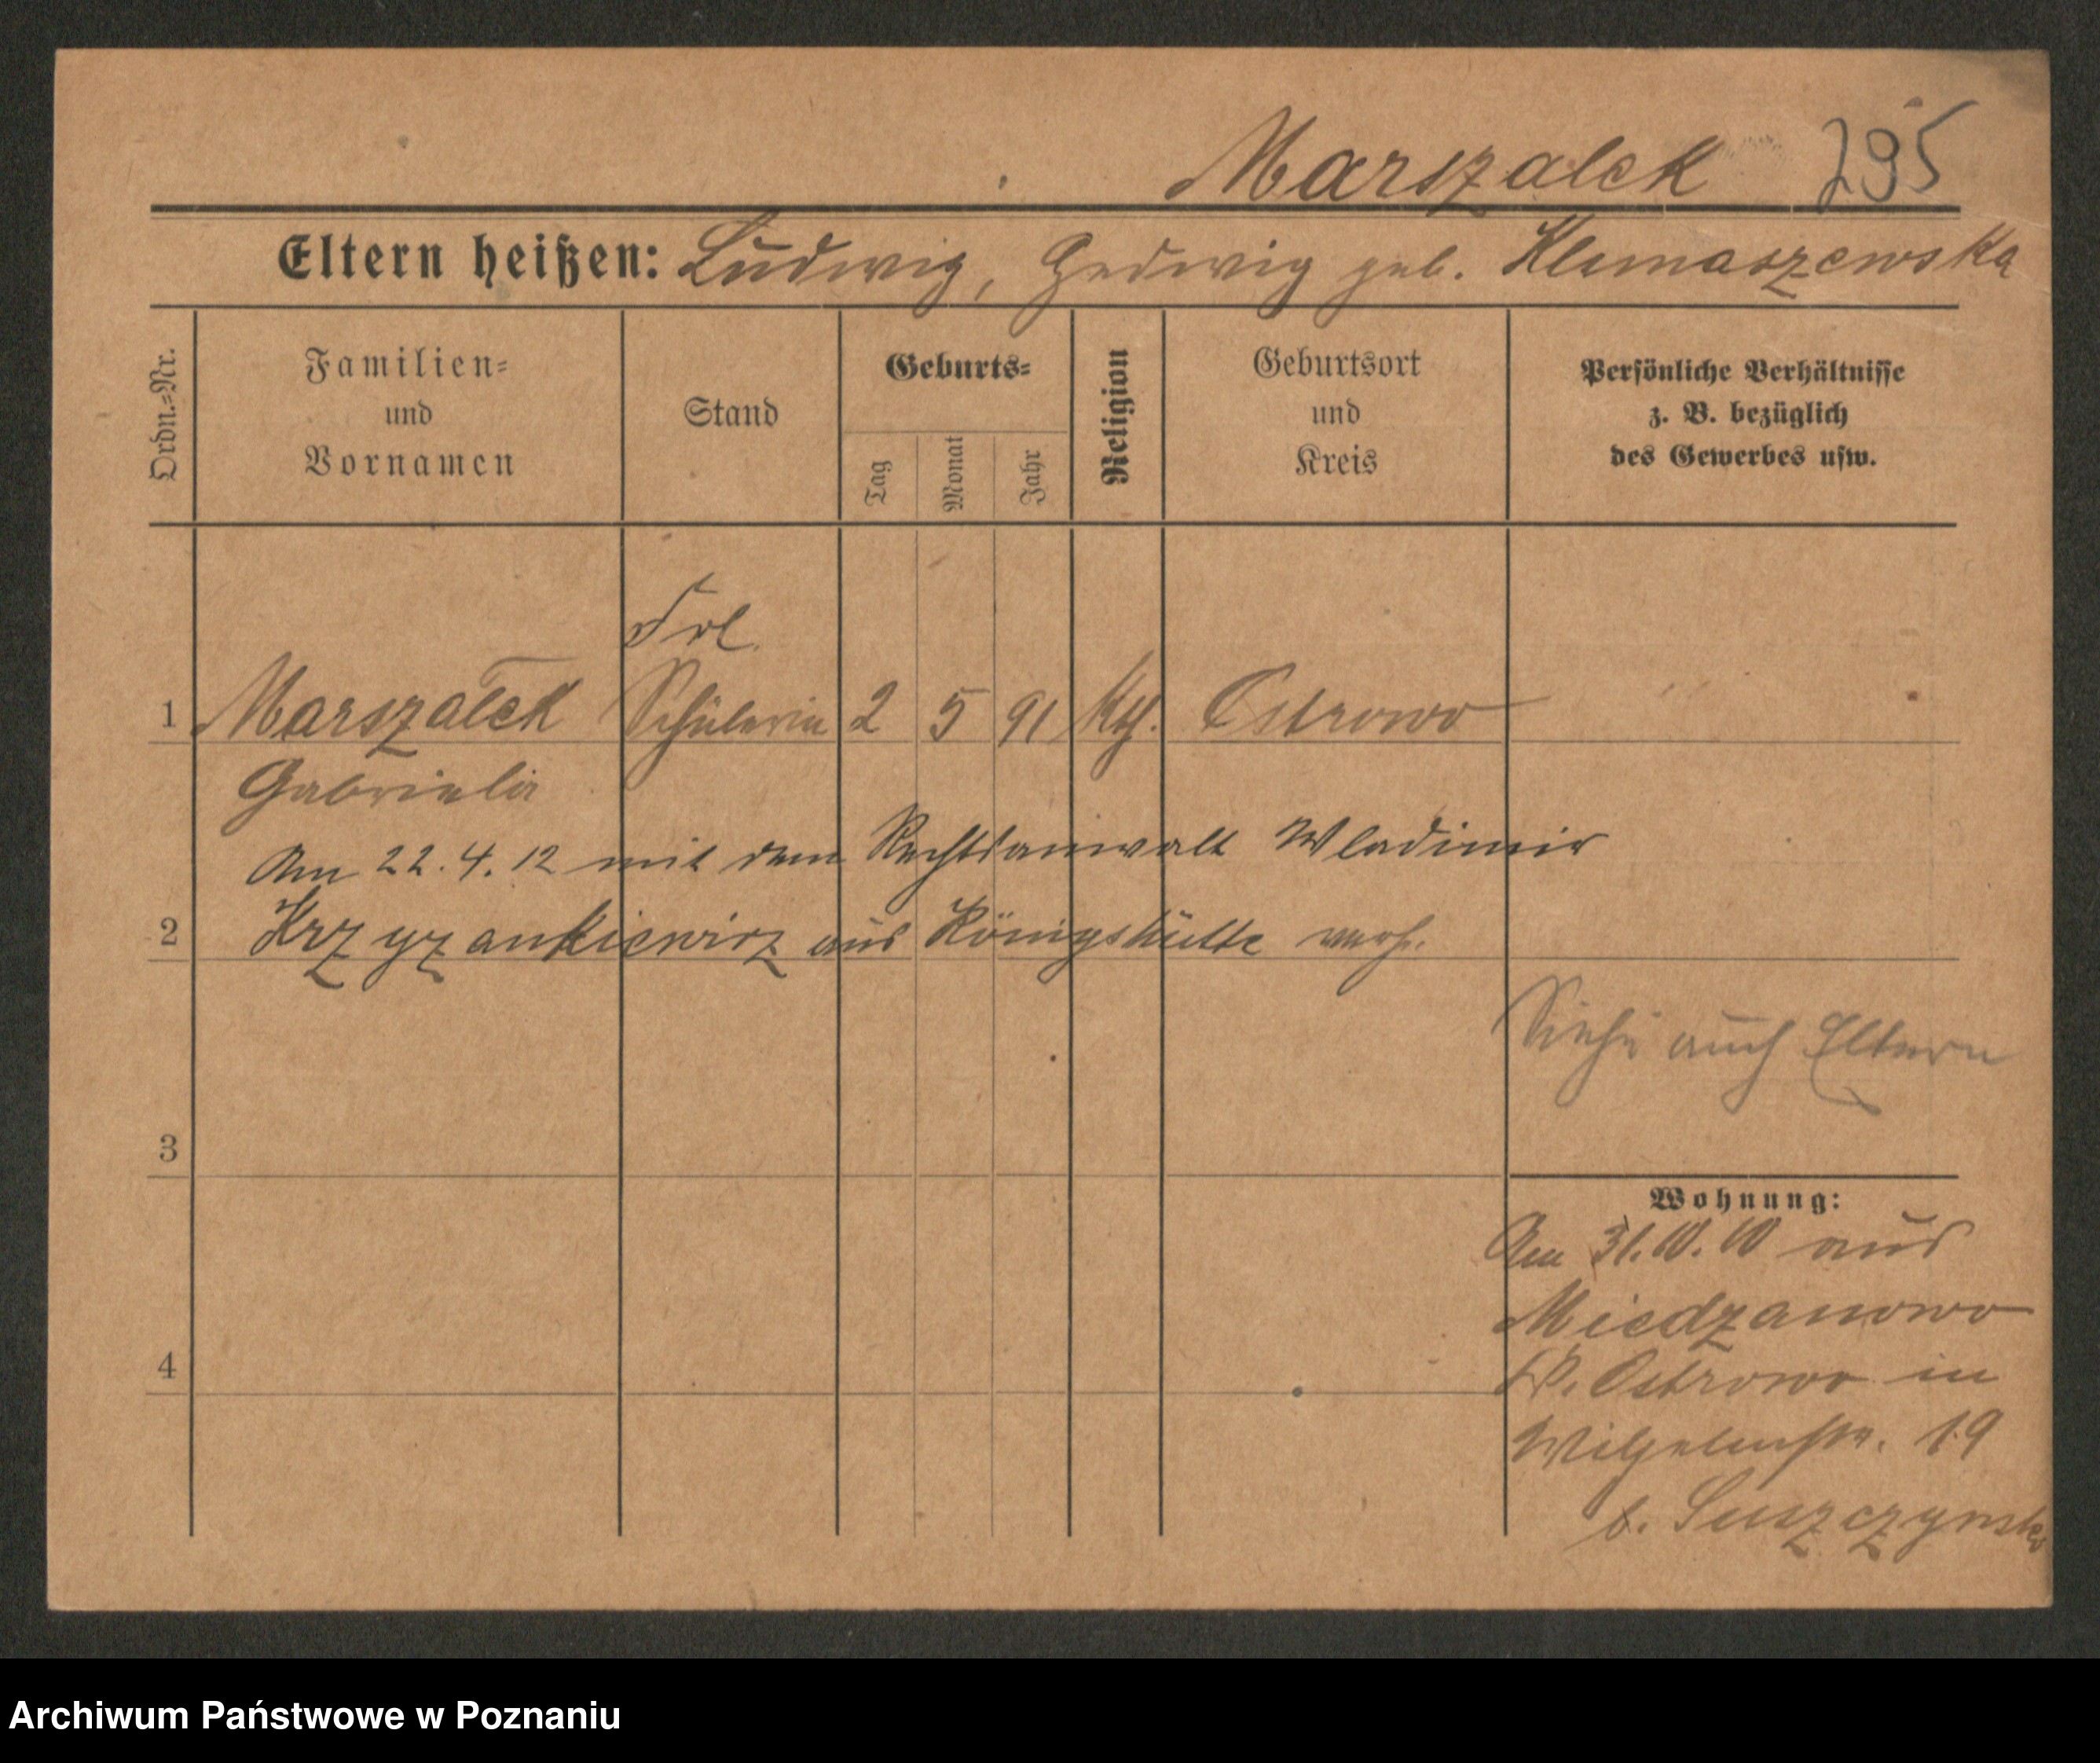 Marszalek 295
Eltern heißen: Ludwig, Hedwig geb. Klimaszewska
Ordn.=Nr.
Familien=
und
Vornamen
Stand
Geburts=
Tag
Monat
Jahr
Religion
Geburtsort
und
Kreis
Persönliche Verhältnisse
z. B. bezüglich
des Gewerbes usw.
Frl.
1 Marszalek Schülerin 2 5 91 Kth. Ostrowo
Gabriela
Am 22.4.12 mit dem Rechtsanwalt Wladimir
2 Krzyzankiewicz aus Königshütte verh.
Siehe auch Eltern
3
Wohnung:
Am 31.10.10 aus
Miedzanowo
4 Ostrowo in
Wilhelmstr. 19
b. Suszczynski
Archiwum Państwowe w Poznaniu